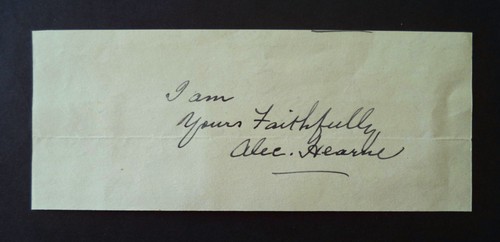 I am
Yours Faithfully
Alec. Hearne